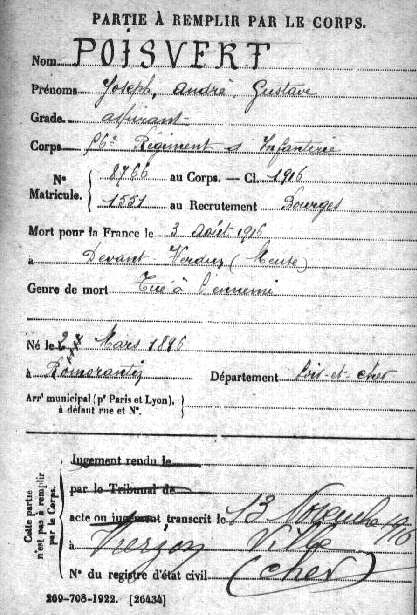 PARTIE À REMPLIR PAR LE CORPS.
Nom POISVERT
Prénoms Joseph, André, Gustave
Grade aspirant
Corps Régiment d'Infanterie
N° Matricule. 8766 au Corps. — Cl. 1916
1551 au Recrutement Bourges
Mort pour la France le 3 Août 1916
à Devant Verdun (Meuse)
Genre de mort Tué à l'ennemi
Né le Mars 1896
à Romorantin Département Loir-et-cher
Arrt municipal (pr Paris et Lyon), à défaut rue et N°.
Cette partie n'est pas à remplir par le Corps.
Jugement rendu le
par le Tribunal de
acte ou jugement transcrit le 13 Novembre 1916
à Vierzon Ville
N° du registre d'état civil (cher)
209-708-1922. [26434]